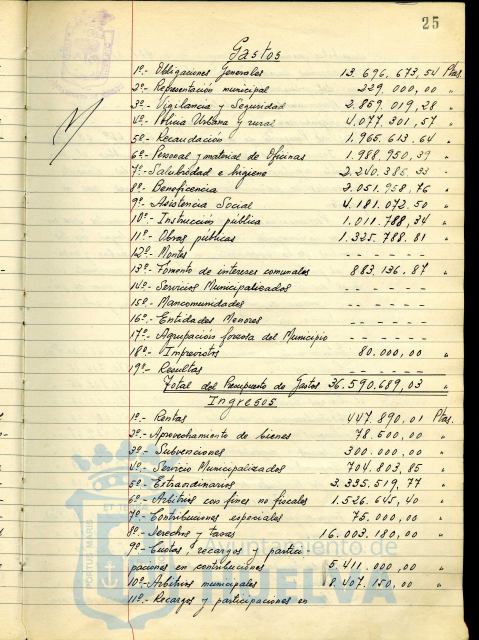 25
Gastos
1º.- Obligaciones Generales 13.696,673,54 Ptas.
2º.- Representación municipal 229.000,00 "
3º.- Vigilancia y Seguridad 2.859.019,28 "
4º.- Policia Urbana y rural 4.077.301,57 "
5º.- Recaudación 1.965.613.64 "
6º.- Personal y material de Oficinas 1.988,950,39 "
7º.- Salubridad e higiene 2.240.385,33 "
8º.- Beneficencia 2.051.958,76 "
9º.- Asistencia Social 4.181.072.50 "
10º.- Instrucción pública 1.011.788,34 "
11º.- Obras públicas 1.325.788.81 "
12º.- Montes - - - - - -
13º.- Fomento de intereses comunales 883,136,87 "
14º.- Servicios Municipalizados - - - - - -
15º.- Mancomunidades - - - - - -
16º.- Entidades Menores - - - - - -
17º.- Agrupación forzosa del Municipio - - - - - -
18º.- Imprevistos 80.000,00 "
19º.- Resultas - - - - - -
Total del Presupuesto de Gastos 36.590.689,03 "
Ingresos
1º.- Rentas 447.890,01 Ptas.
2º.- Aprovechamiento de bienes 78.500,00 "
3º.- Subvenciones 300.000,00 "
4º.- Servicio Municipalizados 704.803,85 "
5º.- Extraordinarios 3.335.519,77 "
6º.- Arbitrios con fines no fiscales 1.526.645,40 "
7º.- Contribuciones especiales 75.000,00 "
8º.- Derechos y tasas 16.003.180,00 "
9º.- Cuotas, recargos y partici-
paciones en contribuciones 5.411.000,00 "
10º.- Arbitrios municipales 8.407.150,00 "
11º.- Recargos y participaciones en
Ayuntamiento de
HUELVA